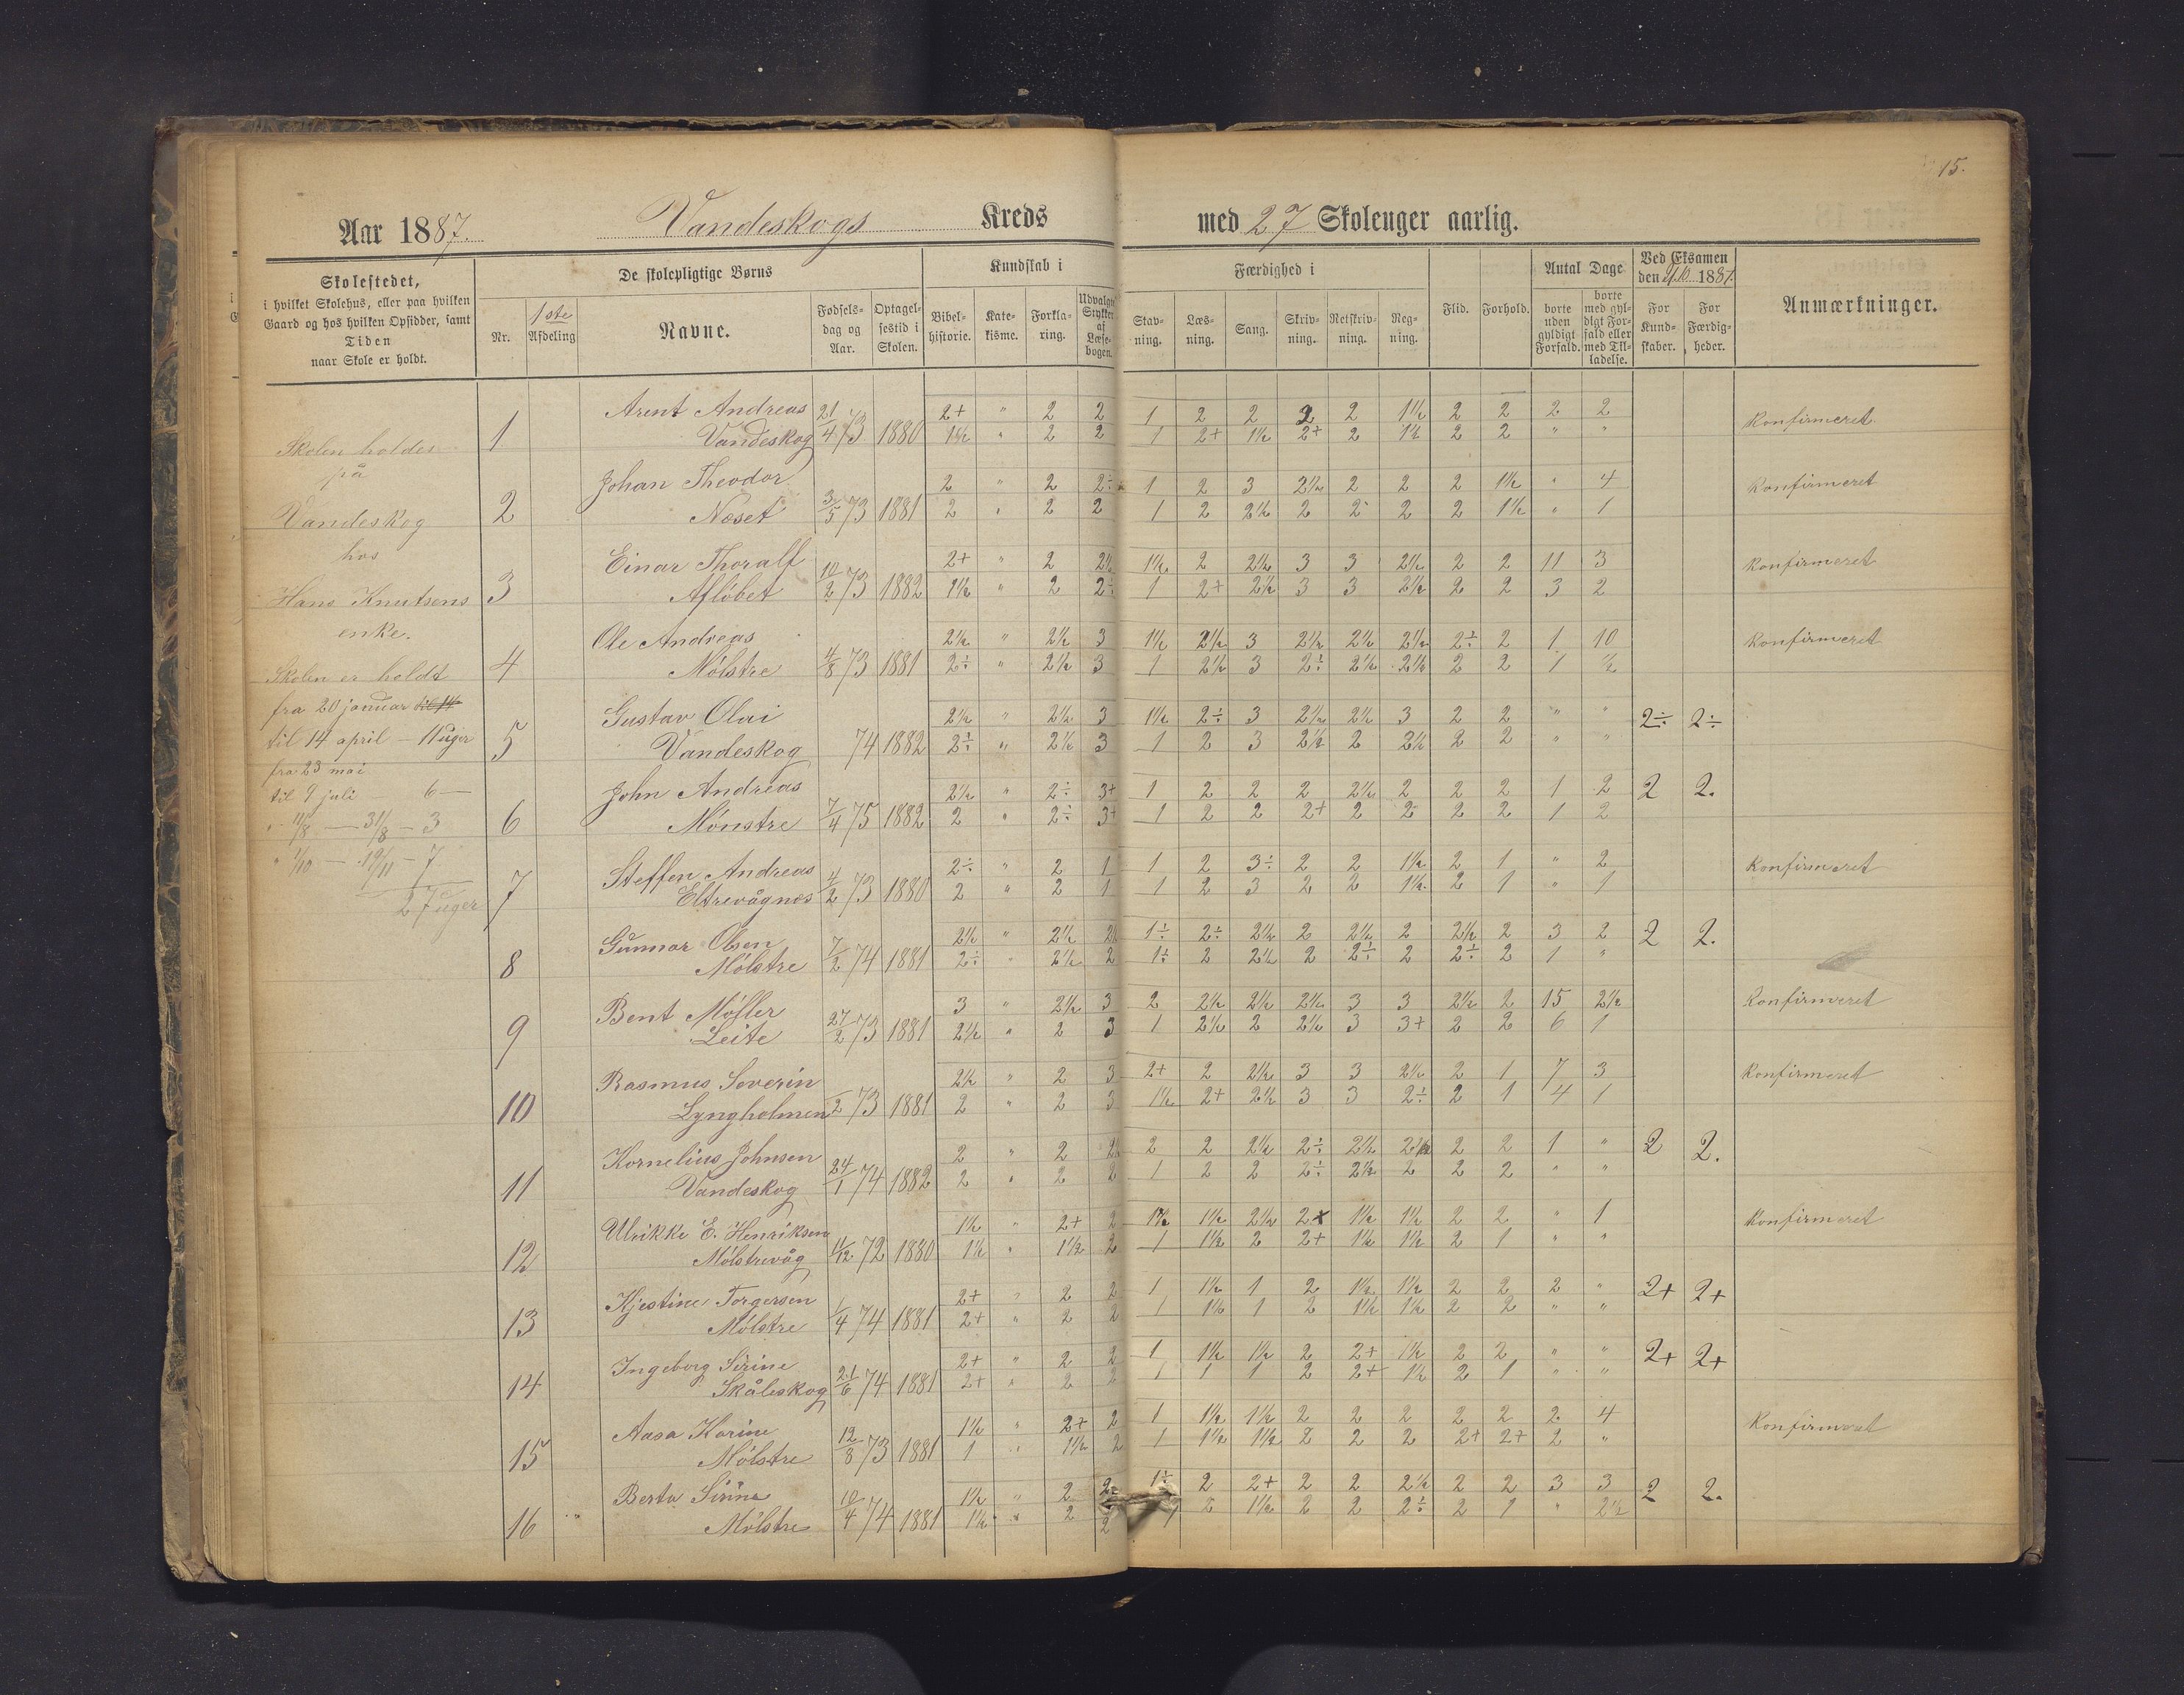 15.
Aar 1887. Vandeskogs Kreds med 27 Skoleuger aarlig.
Skolestedet,
i hvilket Skolehus, eller paa hvilken
Gaard og hos hvilken Opsidder, samt
Tiden
naar Skole er holdt.
De skolepligtige Børns
Nr.
1ste
Afdeling
Navne.
Fødsels-
dag og
Aar.
Optagel-
sestid i
Skolen.
Kundskab i
Bibel-
historie.
Kate-
kisme.
Forkla-
ring.
Udvalgte
Stykker
af
Læse-
bogen.
Færdighed i
Stav-
ning.
Læs-
ning.
Sang.
Skriv-
ning.
Retskriv-
ning.
Reg-
ning.
Flid.
Forhold.
Antal Dage
borte
uden
gyldigt
Forfald.
borte
med gyl-
digt For-
fald eller
med Til-
ladelse.
Ved Eksamen
den 1887.
For
Kund-
skaber.
For
Færdig-
heder.
Anmærkninger.
Skolen holdes
på
Vandeskog
hos
Hans Knutsens
enke.
Skolen er holdt
fra 20 januar
til 14 april — 11 uger
fra 23 mai
til 9 juli 6 —
" 11/8 — 31/8 — 3
" 1/10 — 19/11 — 7
27 uger
1 Arent Andreas 21/4 73 1880 2+ " 2 2 1 2 2 2 2 1½ 2 2 2 2 Konfirmeret
Vandeskog 1½ " 2 2 1 2+ 1½ 2+ 2 1½ 2 2 " "
2 Johan Theodor 3/5 73 1881 2 " 2 2÷ 1 2 3 2½ 2 2 2 1½ " 4 Konfirmeret
Næset 2 " 2 2 1 2 2½ 2 2 2 2 1½ " 1
3 Einar Thoralf 10/2 73 1882 2+ " 2 2½ 1½ 2 2½ 3 3 2½ 2 2 11 3 Konfirmeret
Afløbet 1½ " 2 2÷ 1 2+ 2½ 3 3 2½ 2 2 3 2
4 Ole Andreas 4/8 73 1881 2½ " 2½ 3 1½ 2½ 3 2½ 2½ 2½ 2÷ 2 1 10 Konfirmeret
Mølstre 2÷ " 2½ 3 1 2½ 3 2÷ 2½ 2½ 2 2 1 ½
5 Gustav Olai 74 1882 2½ " 2½ 3 1½ 2÷ 3 2½ 2½ 3 2 2 " " 2÷ 2÷
Vandeskog 2÷ " 2½ 3 1 2 3 2½ 2 2½ 2 2 " "
6 John Andreas 7/4 75 1882 2½ " 2÷ 3+ 1 2 2 2 2½ 2 2 2 1 2 2 2.
Mønstre 2 " 2÷ 3+ 1 2 2 2+ 2 2 2 2 1 2
7 Steffen Andreas 4/2 73 1880 2÷ " 2 1 1 2 3÷ 2 2 1½ 2 1 " 2 Konfirmeret
Eltrevågnæs 2 " 2 1 1 2 3 2 2 1½ 2 1 " 1
8 Gunnar Olsen 7/2 74 1881 2½ " 2½ 2½ 1÷ 2÷ 2½ 2 2½ 2 2½ 2 3 2 2 2.
Mølstre 2÷ " 2½ 2 1÷ 2 2½ 2 2÷ 2 2÷ 2 1 "
9 Bent Møller 27/2 73 1881 3 " 2½ 3 2 2½ 2½ 2½ 3 3 2½ 2 15 2½ Konfirmeret
Leite 2½ " 2 3 1 2½ 2 2½ 3 3+ 2 2 6 1
10 Rasmus Severin /2 73 1881 2½ " 2 3 2+ 2 2½ 3 3 2½ 2 1 7 3 Konfirmeret
Lyngholmen 2 " 2 3 1½ 2+ 2½ 3 3 2÷ 2 1 4 1
11 Kornelius Johnsen 24/1 74 1882 2 " 2 2½ 2 2 2½ 2÷ 2½ 2½ 2 2 1 " 2 2.
Vandeskog 2 " 2 2 1 2 2 2÷ 2½ 2 2 2 " "
12 Ulrikke E. Henriksen 11/12 72 1880 1½ " 2+ 2 1½ 1½ 2½ 2+ 1½ 1½ 2 2 " 1 Konfirmeret
Mølstrevåg 1½ " 1½ 2 1 1½ 2 2+ 1½ 1½ 2 1 " "
13 Kjestine Torgersen 1/4 74 1881 2+ " 2 2 1 1½ 1 2 1½ 1½ 2 2 2 " 2+ 2+
Mølstre 2+ " 2 2 1 1½ 1 2 1½ 1½ 2 2 " "
14 Ingeborg Sirine 21/6 74 1881 2+ " 2 2 1 1½ 1½ 2 2+ 1½ 2 2 " " 2+ 2+
Skåleskog 2+ " 2 2 1 1 1 2 2+ 1½ 2 1 " "
15 Aasa Karine 12/8 73 1881 1½ " 2+ 2 1 1½ 1½ 2 2 2 2 2 2 4 Konfirmeret
Mølstre 1 " 1½ 2 1 1½ 1½ 2 2 2 2+ 2+ 2 "
16 Berta Sirine 10/4 74 1881 1½ " 2 2 1÷ 2 2+ 2 2 2½ 2 2 3 3 2 2.
Mølstre 1½ " 2 2 1 2 1½ 2 2 2÷ 2 1 " 2½